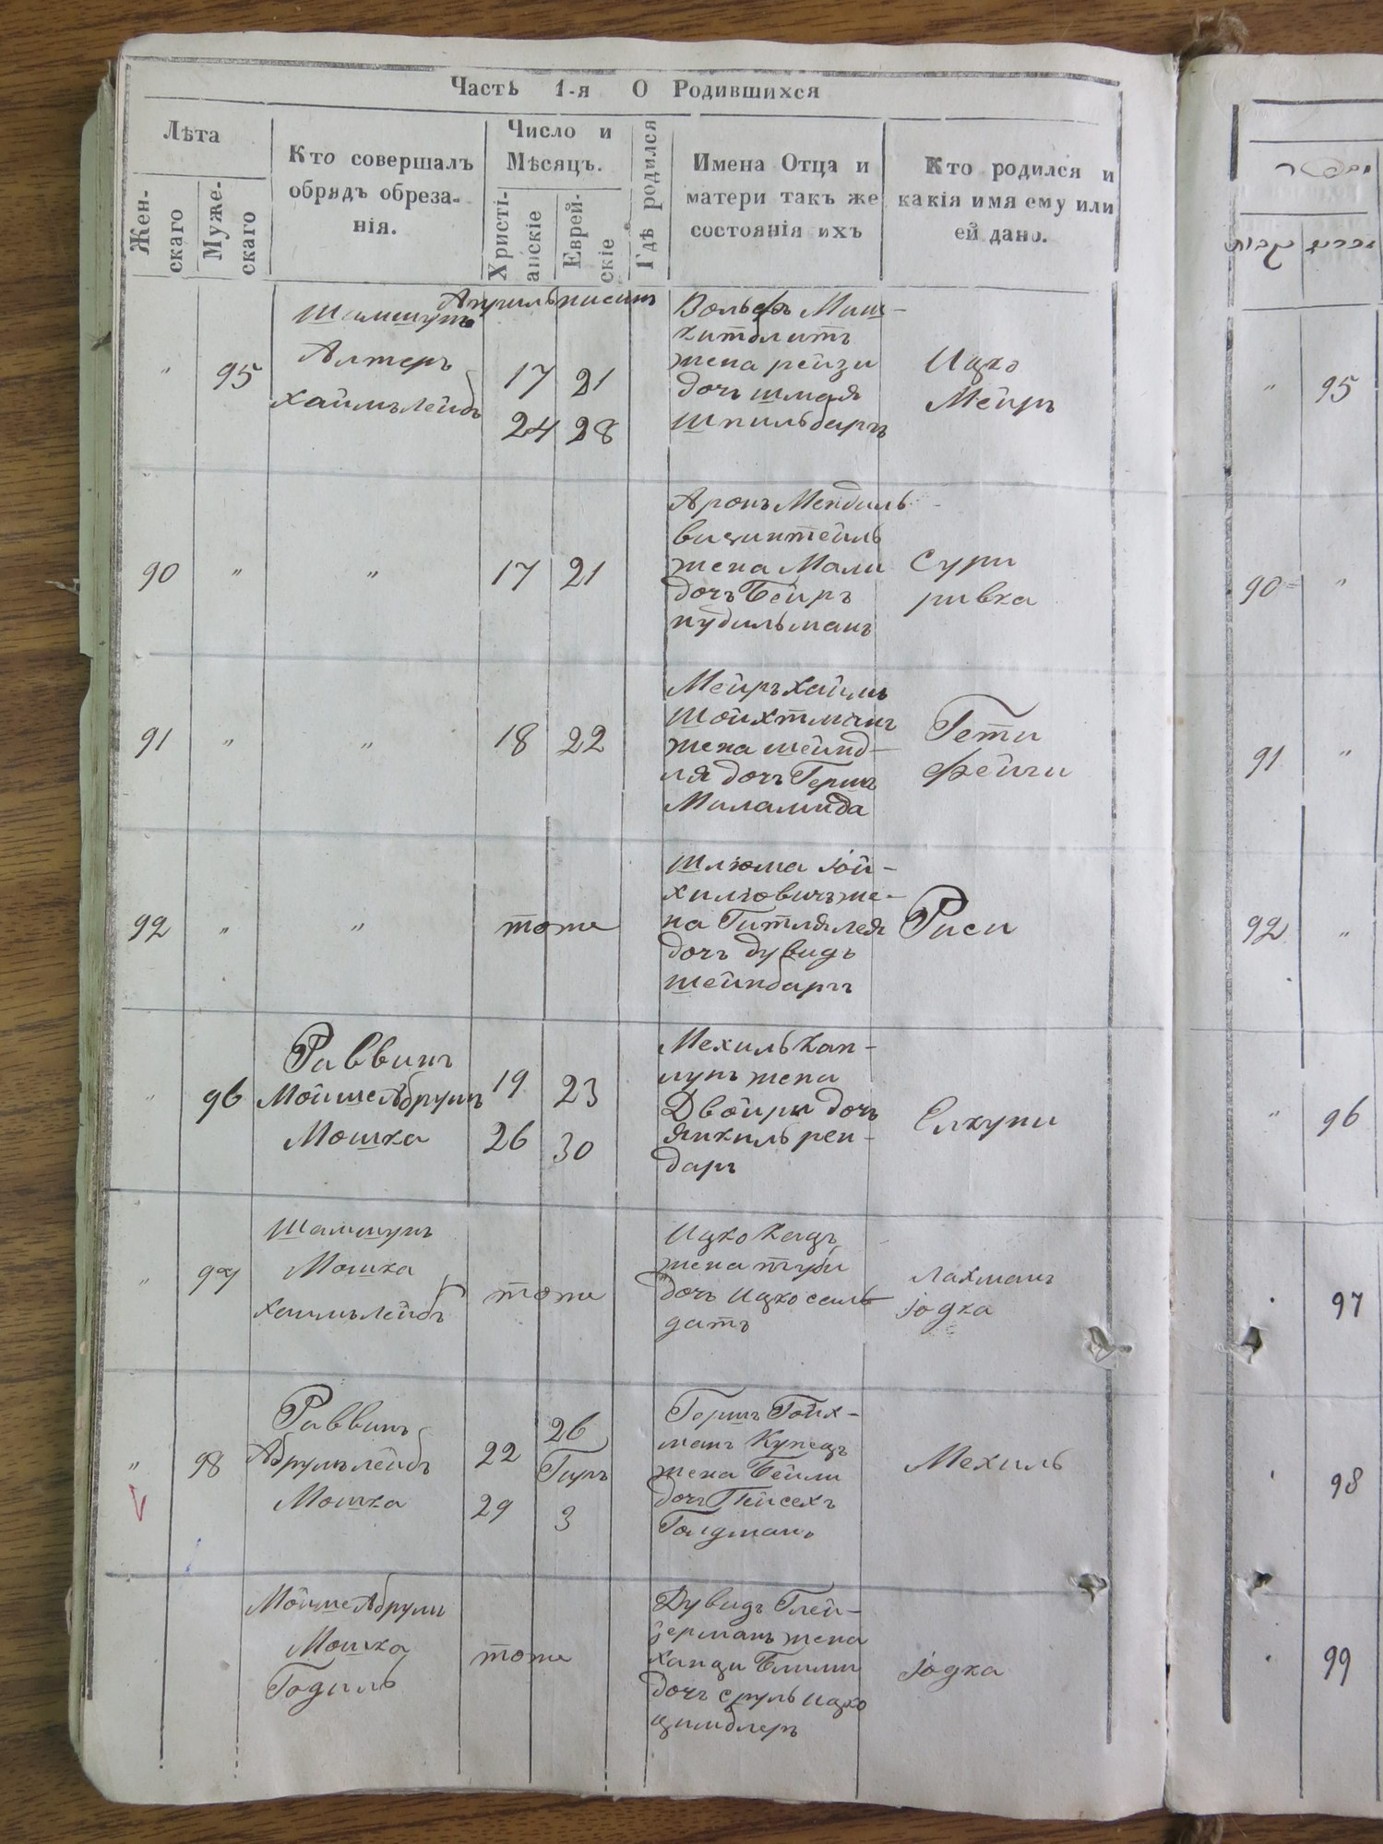 Часть 1-я О Родившихся
Лѣта
Жен-
скаго
Муже-
скаго
Кто совершалъ
обрядъ обреза-
нія.
Число и
Мѣсяцъ.
Христі-
анскіе
Еврей-
скіе
Гдѣ родился
Имена Отца и
матери такъ же
состоянія ихъ
Кто родился и
какія имя ему или
ей дано.
Априль нисинъ
" 95
Шамшунъ
Алтеръ
хаимъ лейбъ
17 21
24 28
Вольфъ Миш-
жена рейзи
дочь шмая
Шпильбаргъ
Ицко
Мейръ
90 " "
17 21
Аронъ Мендиль
жена Мали
дочъ Бейръ
нудильманъ
Сури
ривка
91 " "
18 22
Мейръ хаимъ
Шойхтманъ
жена шейнд-
ля дочъ Гершъ
Миламида
Гети
фейги
92 " "
тоже
Шлюма Іой-
хилювичъ же-
на Гитля лея
дочъ дувидъ
шейнбаргъ
Риси
" 96
Раввинъ
Мойше Абрумъ
Мошка
19 23
26 30
Мехиль Кап-
лунъ жена
Двойри дочъ
Янкиль рен-
даръ
Елкуни
" 97
Шамшунъ
Мошка
хаимъ лейбъ
тоже
Ицко Кацъ
жена туби
дочъ Ицко саль
датъ
Лахманъ
Іодка
" 98
Раввинъ
Абрумъ лейбъ
Мошка
22 26
Гиръ
29 3
Гершъ Гойх-
манъ Купецъ
жена Бейли
дочъ Пейсехъ
Гоидманъ
Мехиль
Мойше Абрумъ
Мошка
Годиль
тоже
Дувидъ Глей-
зерманъ жена
ханци Блими
дочъ сруль Ицко
цимблеръ
Іодка
" 95
90 "
91 "
92 "
" 96
97
98
99